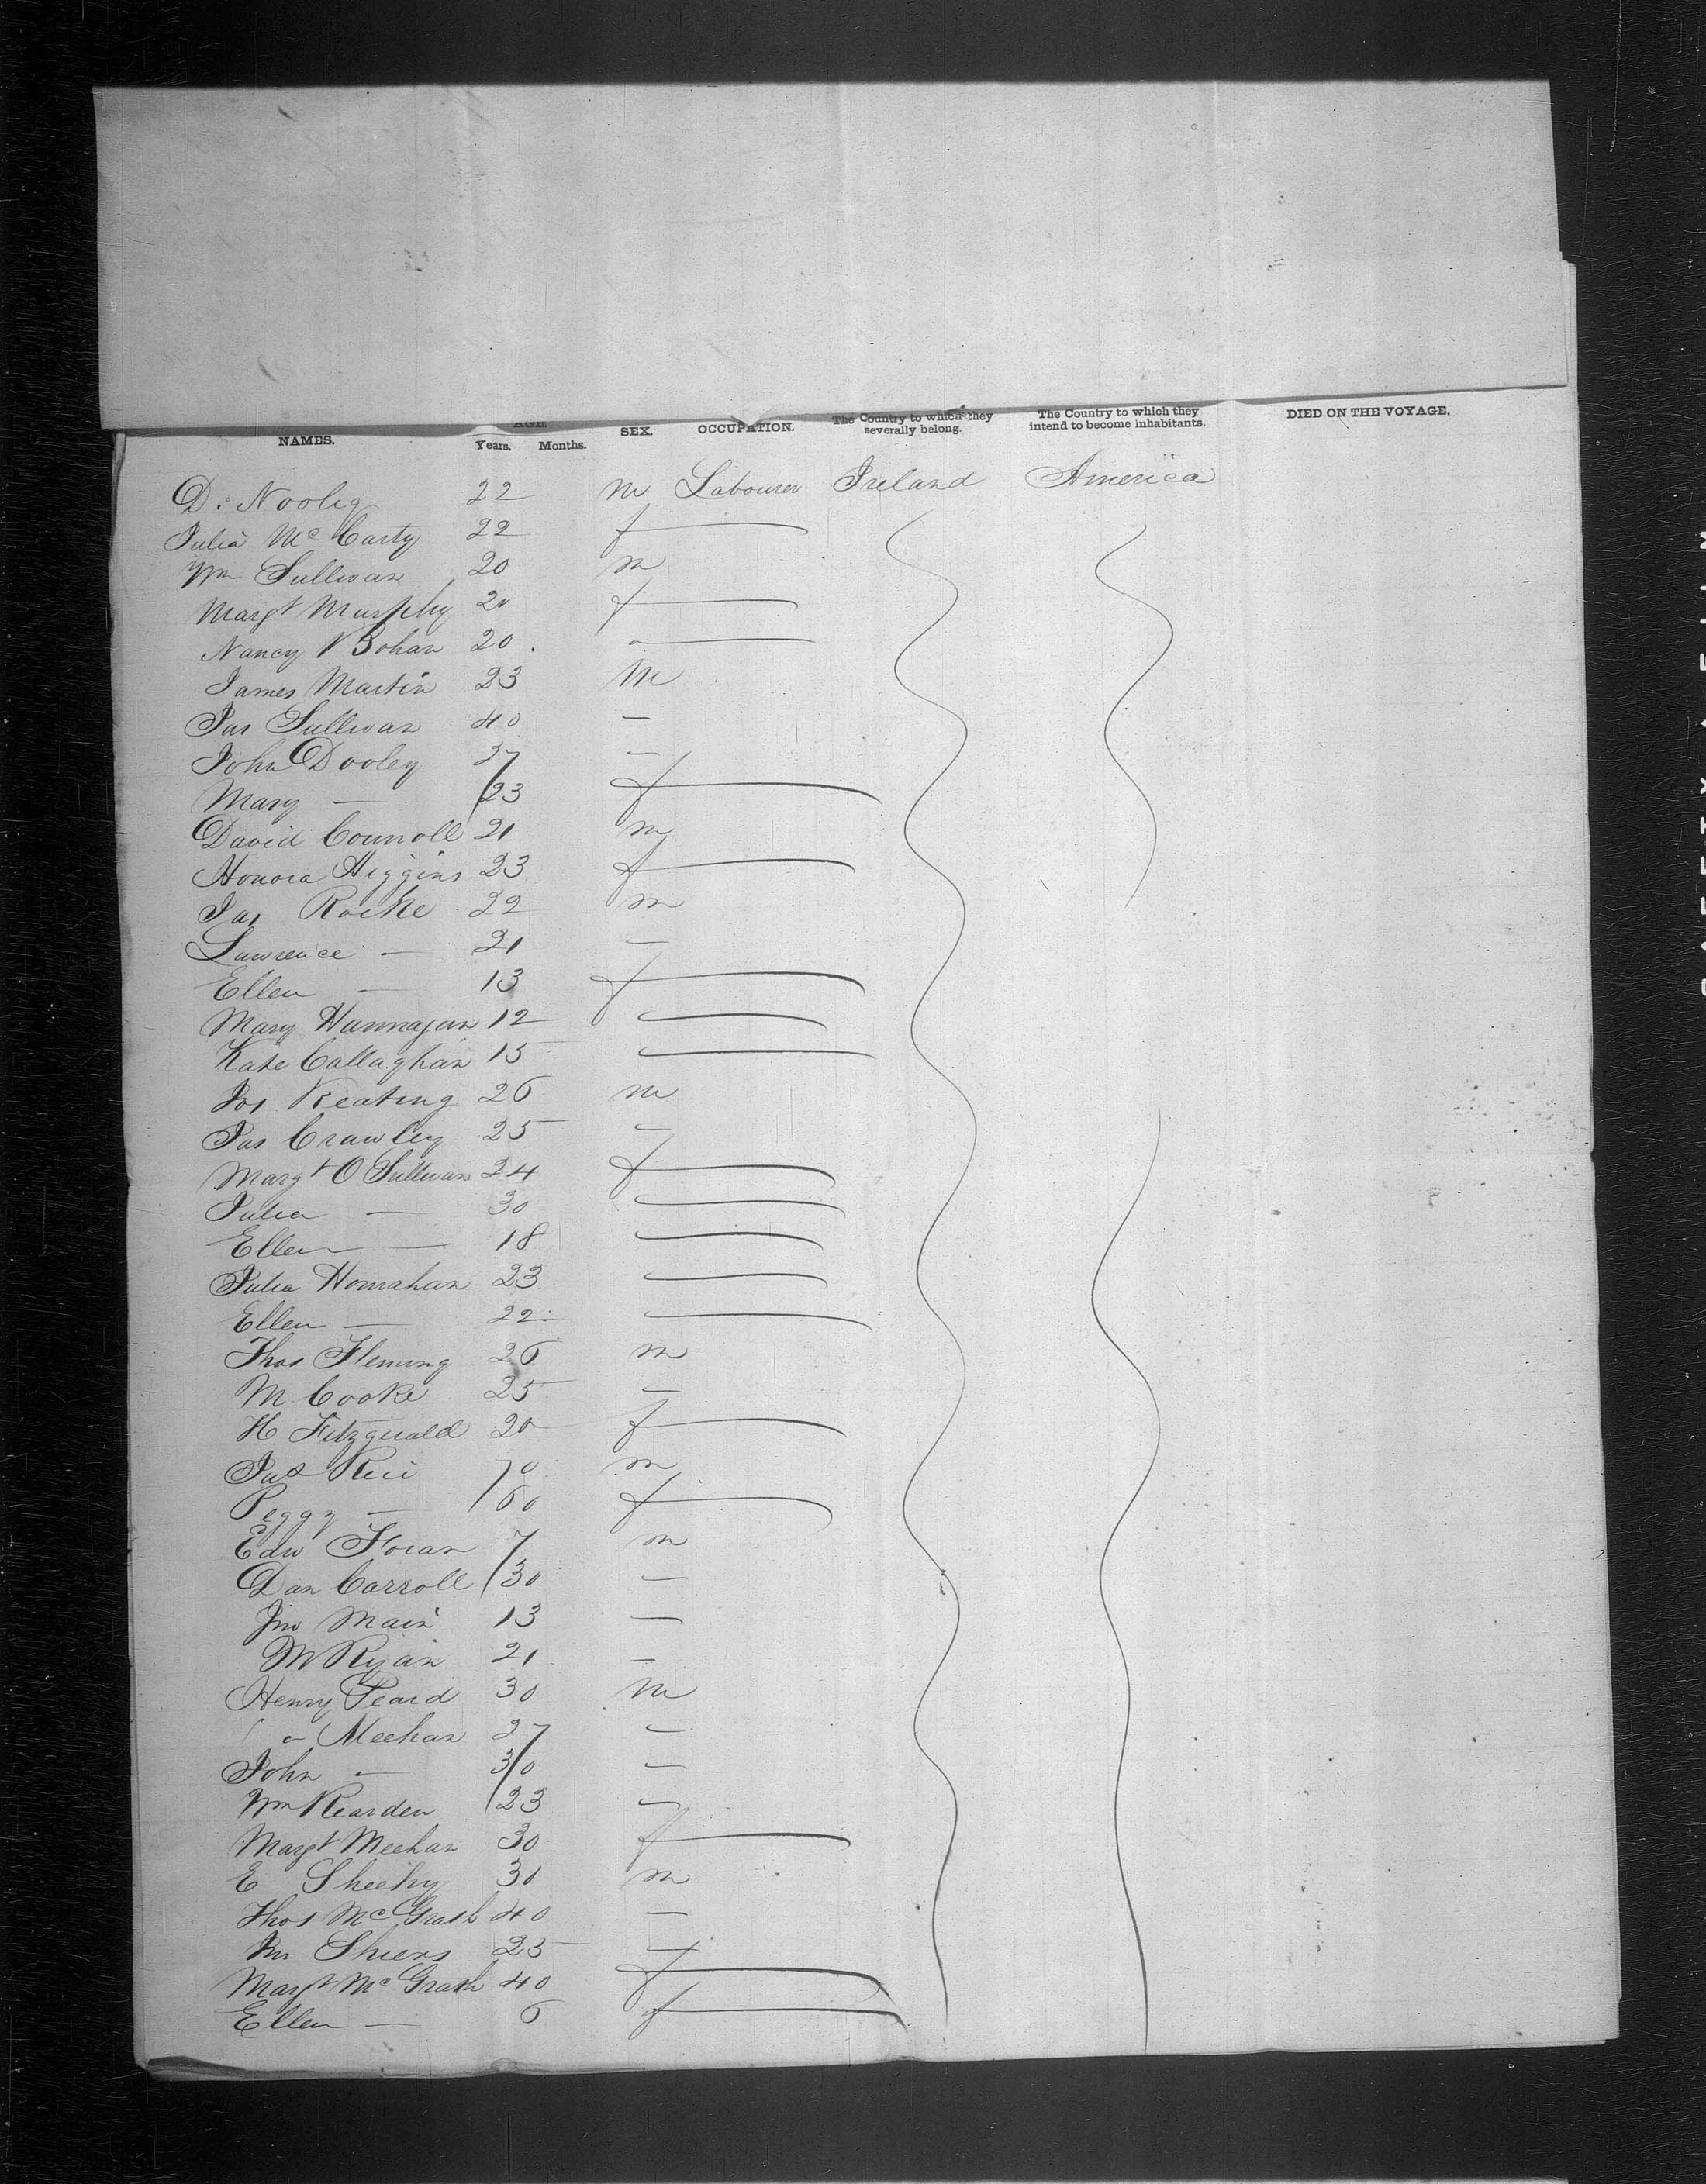 NAMES. AGE. Years. Months. SEX. OCCUPATION. The Country to which they severally belong. The Country to which they intend to become inhabitants. DIED ON THE VOYAGE.
D. 22 m Labourer Ireland America
Julia McCarty 22 f
Wm Sullivan 20 m
Margt Murphy 20 f
Nancy Bohan 20
James Martin 23 m
Jas Sullivan 40 —
John Dooley 37 —
Mary — 23 f
David Connoll 21 m
Honora Higgins 23 f
Jas Rocke 22 m
Lawrence — 21 —
Ellen — 13 f
Mary Hannagan 12
Kate Callaghan 15
Jos Keating 26 m
Jas Crawley 25 —
Margt O Sullivan 24 f
Julia — 30
Ellen — 18
Julia Honrahan 23
Ellen — 22
Thos Fleming 26 m
M Cooke 25 —
H Fitzgerald 20 f
Jas Rice 70 m
Peggy — 60 f
Edw Foran 7 m
Dan Carroll 30 —
Jno Main 13 —
M Ryan 21 —
Henry Peard 30 m
Meehan 27 —
John — 30 —
Wm Rearden 23 —
Margt Meehan 30 f
E Sheehy 30 m
Thos McGrath 40 —
Jno Shiers 25 —
Margt McGrath 40 f
Ellen — 6 f